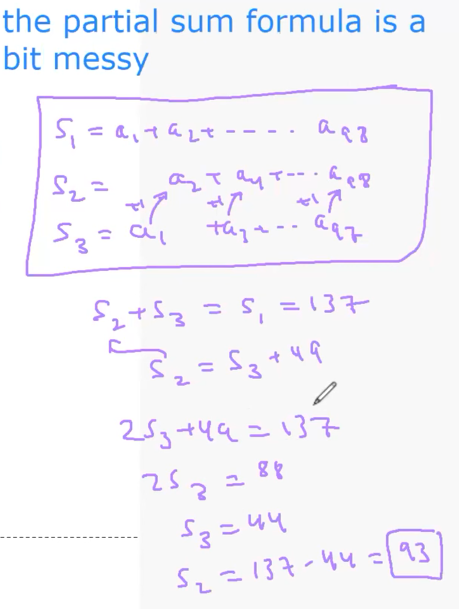 the partial sum formula is a
bit messy
S₁ = a₁ + a₂ + - - - - · a₉₈
S₂ = a₂ + a₄ + - - · a₉₈
+1 +1 +1
S₃ = a₁ + a₃ + - · · a₉₇
S₂ + S₃ = S₁ = 137
S₂ = S₃ + 49
2S₃ + 49 = 137
2S₃ = 88
S₃ = 44
S₂ = 137 - 44 = 93